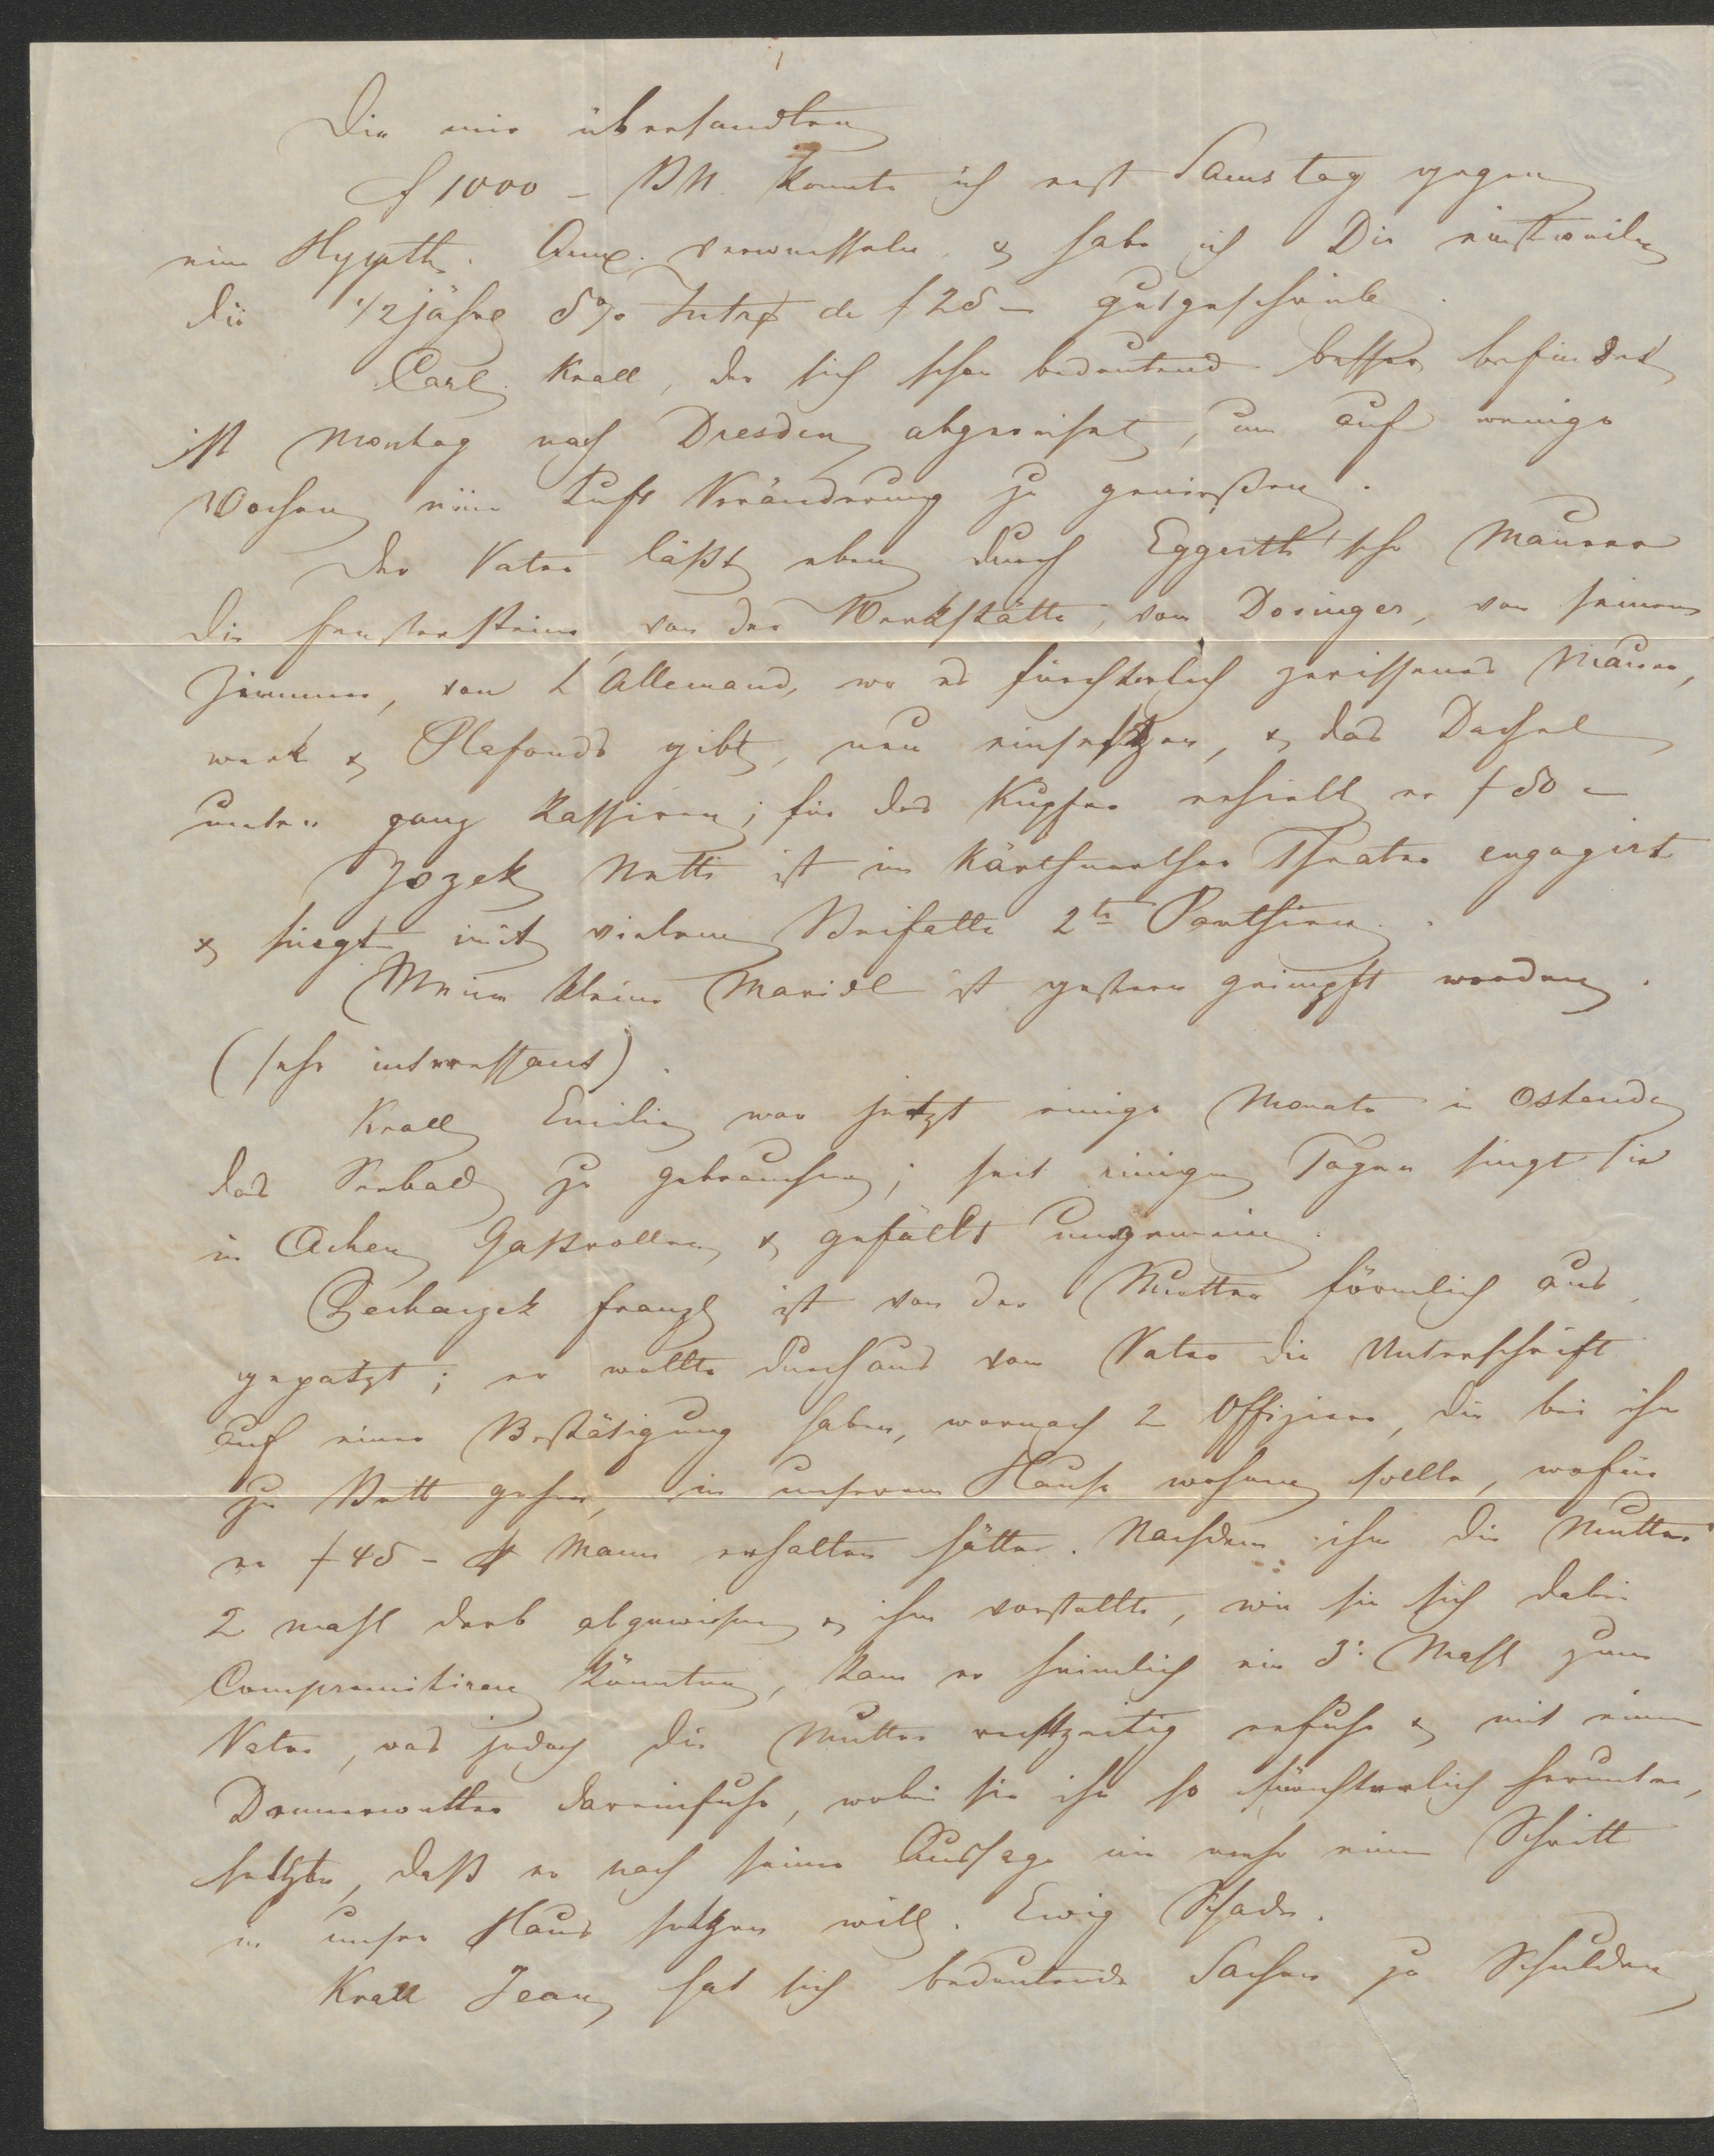 Die mir übersandten
f 1000 – BN konnte ich erst Samstag gegen
eine Hypoth. Anw. verwechseln, & habe ich Dir einstweilen
die 1/2jähr 5% Intr de f 25 – gutgeschrieb.
Carl Krall, der sich schon bedeutend besser befindet
ist Montag nach Dresden abgereiset, um auf wenige
Wochen eine Luft Veränderung zu genießen.
Der Vater läßt eben durch Eggerth'sche Maurer
die Fenstersteine, von der Werkstätte, von Dosinger, von seinem
Zimmer, von L'Allemand, wo es fürchterlich zerissenes Mauer,
werk & Plafonds gibt, neu einsetzen, & das Dachel
unten ganz kassiren; für das Kupfer erhielt er f 50 –
Jozek Netti ist im Kärthnerthor Theater engagirt
& singt mit vielem Beifalle 2te Parthien.
Meine kleine Maridl ist gestern geimpft worden.
(sehr interessant).
Krall Emilie war jetzt einige Monate in Ostende
das Seebad zu gebrauchen; seit einigen Tagen singt sie
in Achen Gastrollen & gefällt ungemein.
Franzl ist von der Mutter förmlich aus,
gepatzt; er wollte durchaus vom Vater die Unterschrift
auf einer Bestätigung haben, wornach 2 Offiziere, die bei ihm
zu Bett gehen, in unserem Hause wohnen sollte, wofür
er f 45 – Mann erhalten hätte. Nachdem ihn die Mutter
2 mahl derb abgewiesen & ihm vorstellte, wie sie sich dabei
Compromitiren könnten, kam er heimlich ein 3: Mahl zum
Vater, was jedoch die Mutter rechtzeitig erfuhr & mit einem
Donnerwetter dareinfuhr, wobei sie ihn so fürchterlich herunter,
setzte, daß er nach seiner Aussage nie mehr einen Schritt
in unser Haus setzen will. Ewig Schade.
Krall Jean hat sich bedeutende Sachen zu Schulden